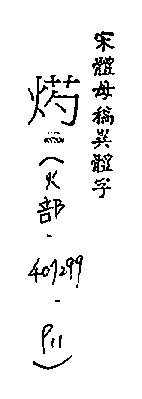 宋體母稿異體字
焫
(火部-407299-P11)